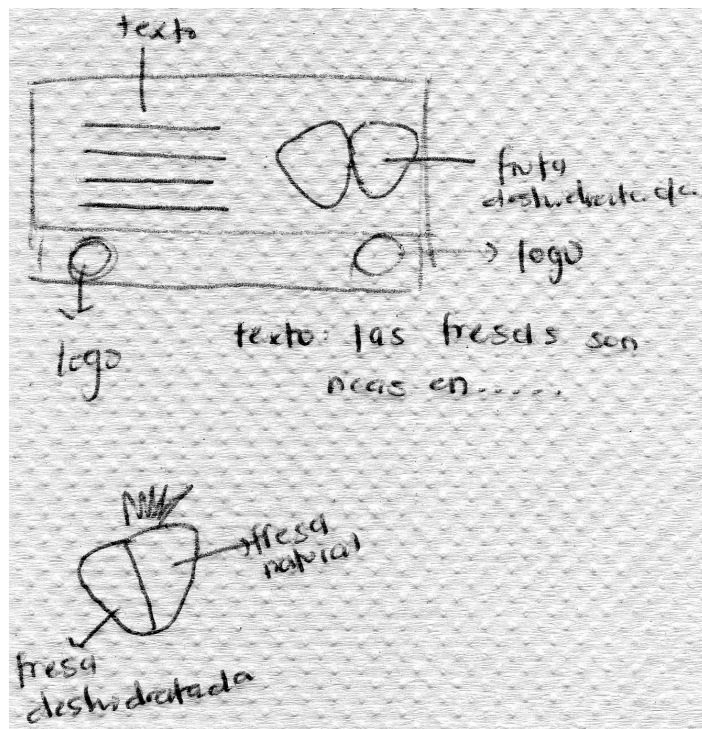 texto
fruta
deshidratada
logo
logo
texto: las fresas son
ricas en.....
fresa
natural
fresa
deshidratada